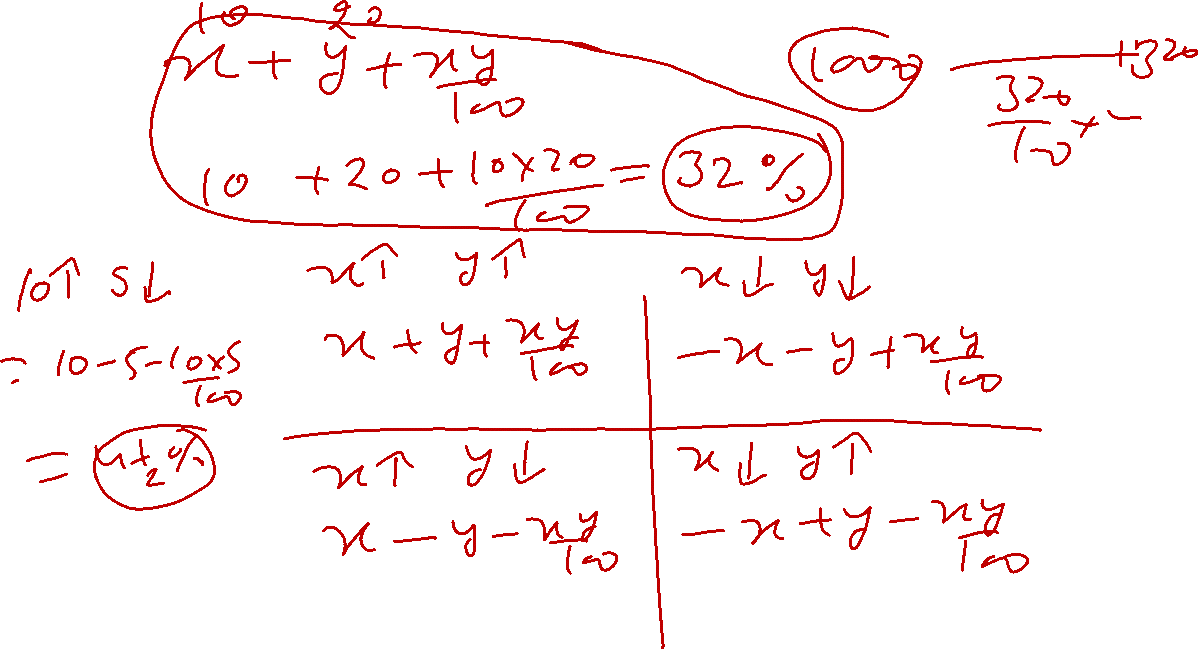 10 20
x + y + xy/100
10 + 20 + 10×20/100 = 32%
1000 +320
320/100 × -
10↑ 5↓
= 10 - 5 - 10×5/100
= 4 1/2 %
x↑ y↑
x + y + xy/100
x↓ y↓
- x - y + xy/100
x↑ y↓
x - y - xy/100
x↓ y↑
- x + y - xy/100